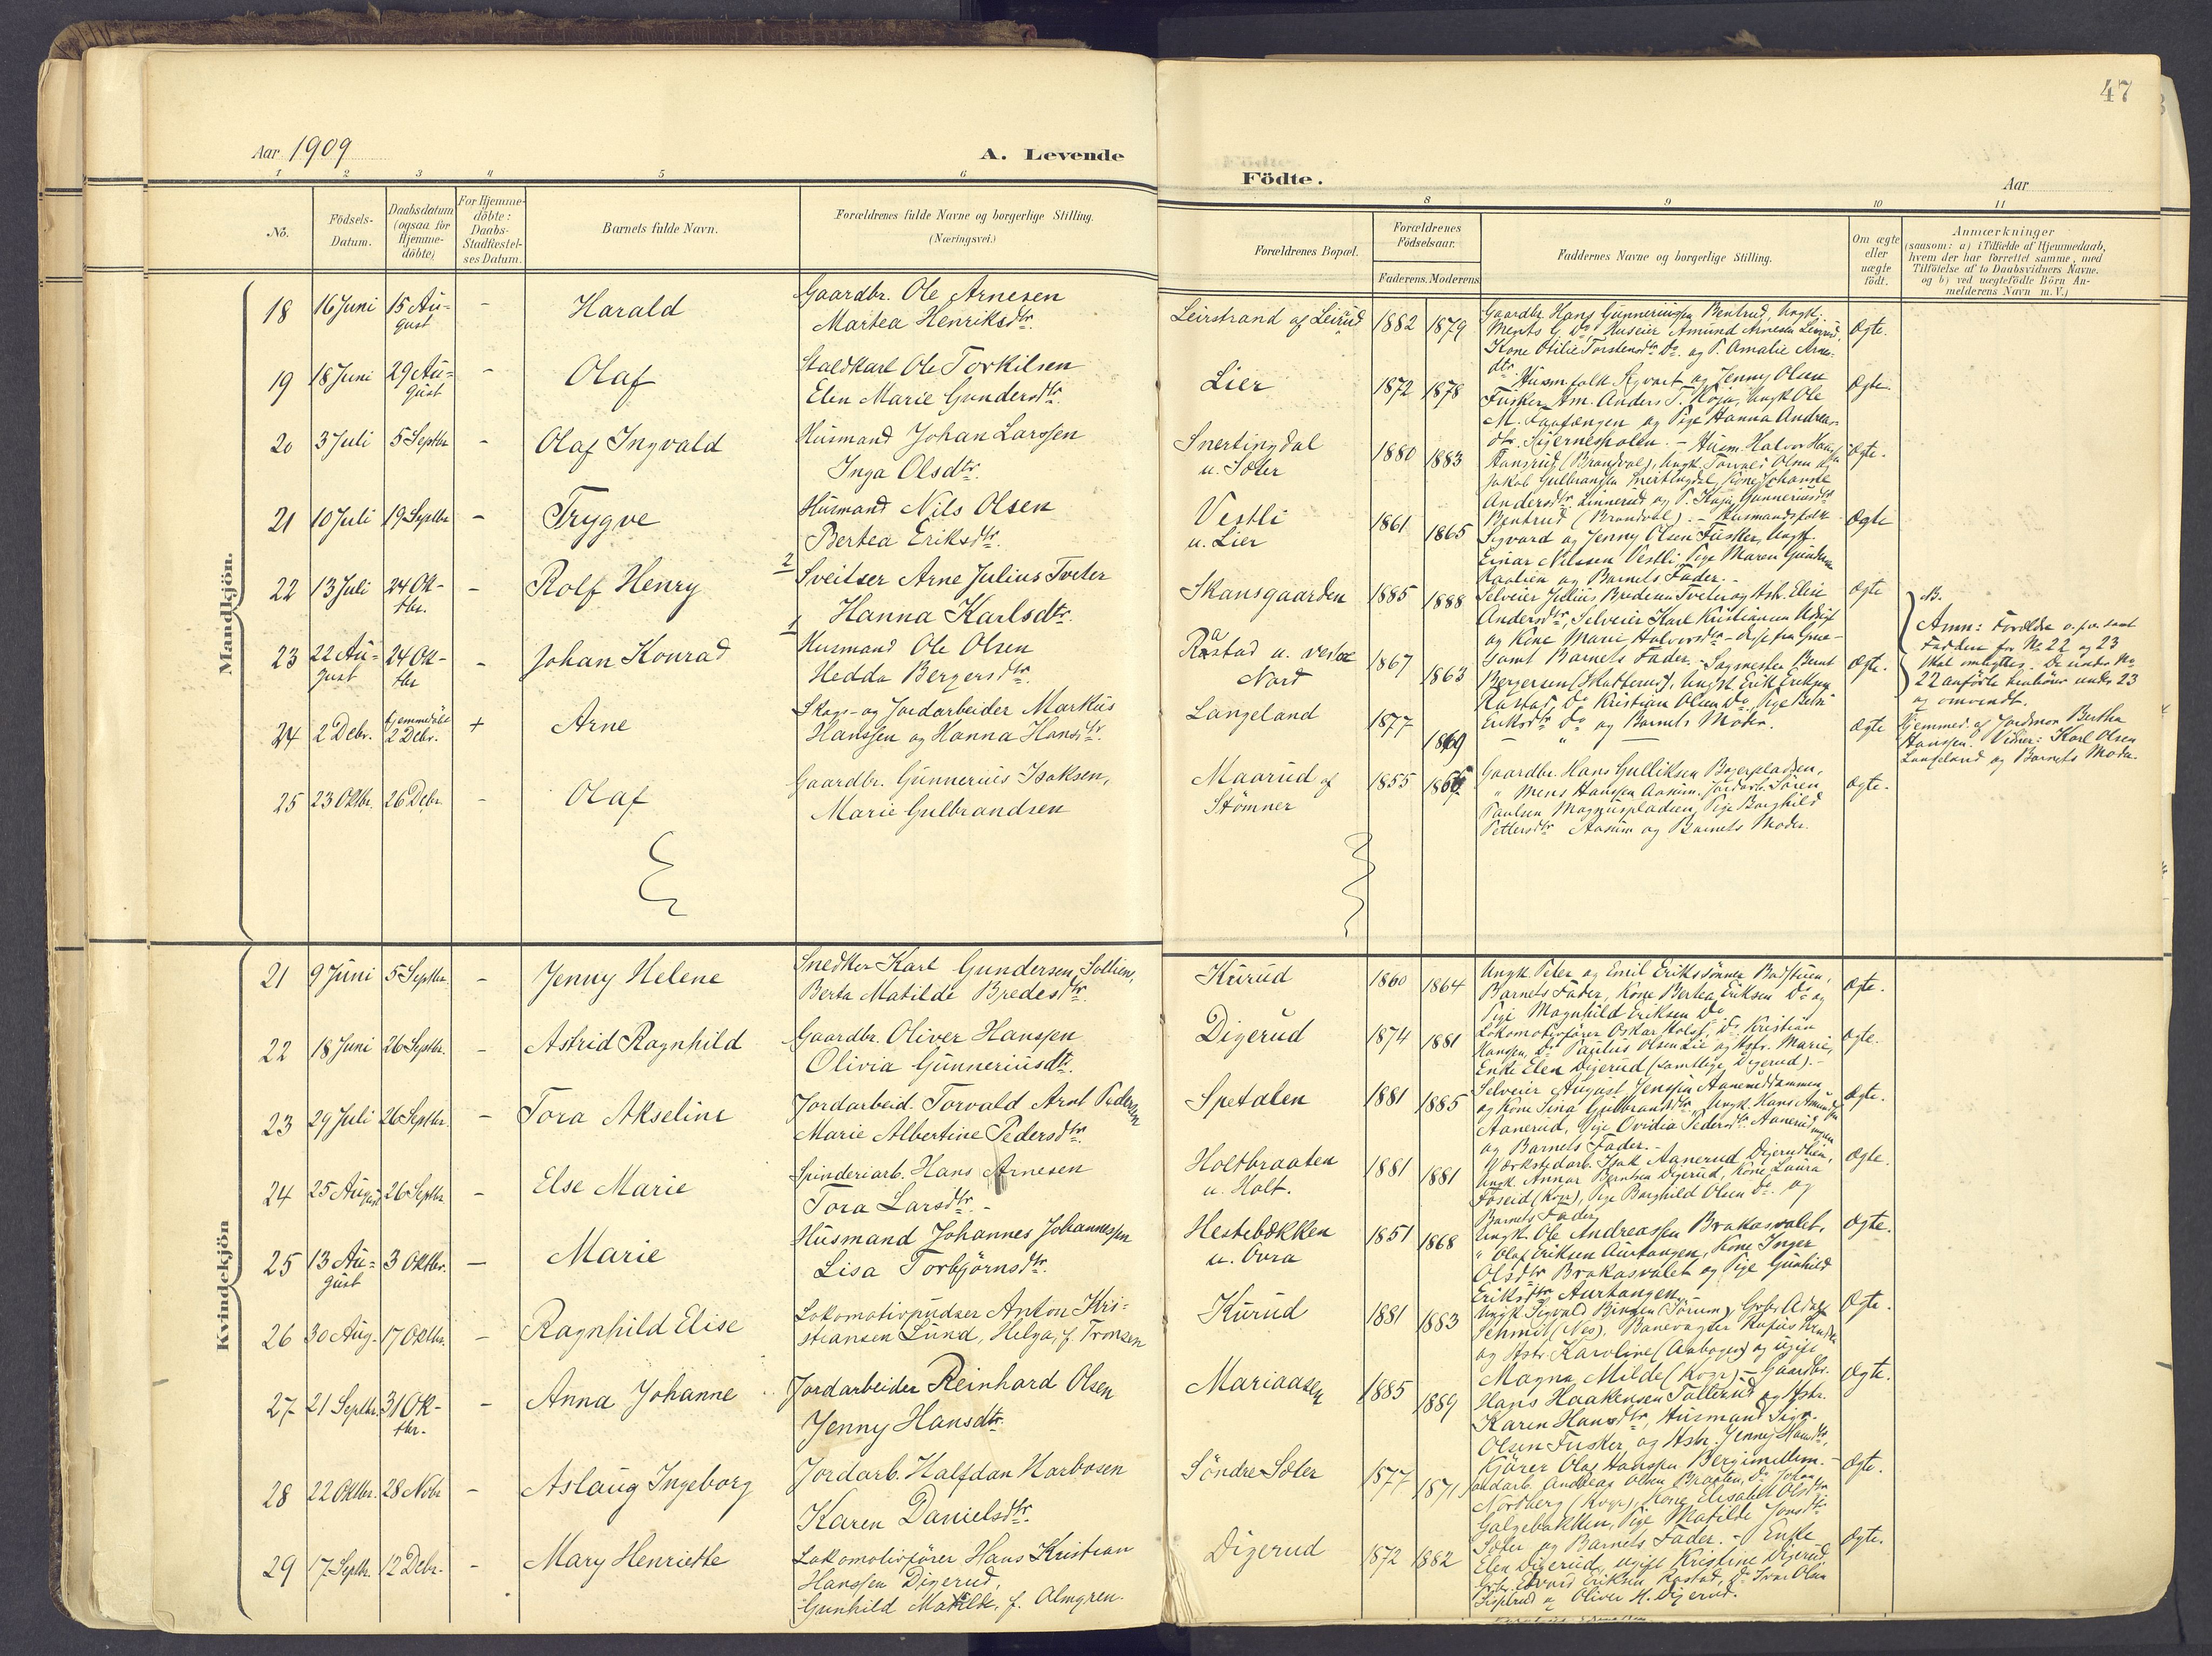 47
Aar 1909
A. Levende
Födte.
Aar
1 2 3 4 5 6 8 9 10 11
No.
Födsels-
Datum.
Daabsdatum
(ogsaa for
Hjemme-
döbte)
For Hjemme-
döbte:
Daabs-
Stadfæstel-
ses Datum.
Barnets fulde Navn.
Forældrenes fulde Navne og borgerlige Stilling.
(Næringsvei.)
Forældrenes Bopæl.
Forældrenes
Födselsaar.
Faderens. Moderens
Faddernes Navne og borgerlige Stilling.
Om ægte
eller
uægte
födt.
Anmærkninger
(saasom: a) i Tilfælde af Hjemmedaab,
hvem der har forrettet samme, med
Tilföielse af to Daabsvidners Navne.
og b) ved uægtefödte Börn An-
melderens Navn m. V.)
Mandkjön.
18 16 Juni 15 Au-
gust
- Harald
Gaardbr. Ole Arnesen
Martea Henriksdtr.
Leirstrand af Leirud 1882 1879
Gaardbr. Hans Gunneriussen Bentrud, Ungk.
Ments G. Do Huseier Amund Arnesen
Kone Otilie Torstensdtr Do. og P. Amalie Arne-
dtr.
Ægte.
19 18 Juni 29 Au-
gust
- Olaf
Staldkarl Ole Torkilsen
Elen Marie Gundersdtr.
Lier 1872 1878
Husm.folk Sigvart og Jenny Olsen
Fusker, Hm. Anders T. Moja, Ungk Ole
M. Faafængen og Pige Hanna Andreas-
Ægte.
20 3 Juli 5 Septbr - Olaf Ingvald
Husmand Johan Larssen
Inga Olsdtr.
Snertingdal
u. Soler
1880 1883
dtr. Stjernesholen. - Husm. Halvor
(Brandval), Ungk. Torvald Olsen og
Jakob Gulbrandsen Snertingdal, Kone Johanne
Andersdtr Linnerud og P. Kaja Gunneriusdtr
Ægte.
21 10 Juli 19 Septbr - Trygve
Husmand Nils Olsen
Bertea Eriksdtr.
Vestli
u. Lier
1861 1865
Bentrud (Brandval). - Husmandsfolk
Sigvard og Jenny Olsen Fusker, Ungk.
Einar Nilssen Vestli, Pige Maren
og Barnets Fader. -
Ægte
22 13 Juli 24 Ok-
tbr.
- Rolf Henry
2 Sveitser Arne Julius Tveter
Hanna Karlsdtr.
Skansgaarden 1885 1888
Selveier Julius Tveter og Hstr. Elise
Andersdtr, Selveier Karl Kristiansen
og Kone Marie Halvorsdtr - disse fra Grue -
samt Barnets Fader. -
Ægte
23 22 Au-
gust
24 Ok-
tbr
- Johan Konrad
1 Husmand Ole Olsen
Hedda Bergersdtr.
Råstad u. vestre
Nord
1867 1863
Sagmester Bernt
Bergersen (Skotterud), Ungk Erik Eriksen
Råstad, Do Kristian Olsen Do., Pige
Eriksdtr Do og Barnets Moder.
Ægte.
NB.
Anm: Forældre o.s.v. samt
Faddere for No. 22 og 23
skal ombyttes. De under No
22 anförte henhörer under 23
og omvendt.
24 2 Debr. Hjemmedöbt
2 Debr.
+ Arne
Skogs- og Jordarbeider Markus
Hanssen og Hanna Hansdtr.
Langeland 1877 1869
Ægte
Hjemmed. af Jordmor Bertha
Hanssen. Vidner: Karl Olsen
Langeland og Barnets Moder.
25 23 Oktbr. 26 Debr. - Olaf
Gaardbr. Gunnerius Isaksen,
Marie Gulbrandsen
Maarud af
Stömner
1855 1866
Gaardbr. Hans Gulliksen Bogerpladsen,
" Mens Hanssen Aasum. Jordarb. Sören
Paulsen Magnuspladsen, Pige Borghild
Pettersdtr Aasum og Barnets Moder.
Ægte.
Kvindekjön
21 9 Juni 5 Septbr. - Jenny Helene
Snedker Karl Gundersen Sollien,
Berta Matilde Bredesdtr.
Kurud 1860 1864
Ungk. Peter og Emil Erikssönner Badstuen,
Barnets Fader, Kone Bertea Eriksen Do og
Pige Magnhild Eriksen Do.
Ægte.
22 18 Juni 26 Septbr. - Astrid Ragnhild
Gaardbr. Oliver Hanssen
Olivia Gunneriusdtr.
Digerud 1874 1881
Lokomotivförer Oskar Holst, Do Kristian
Hanssen, Do Paulus Olsen Lie og Hstr. Marie,
Enke Elen Digerud (samtlige Digerud). -
Ægte.
23 29 Juli 26 Septbr. - Tora Akseline
Jordarbeid. Torvald Arnt Pedersen
Marie Albertine Pedersdtr.
Spetalen 1881 1885
Selveier August Jenssen Aaneruddammen
og Kone Sina Gulbrandsdtr, Ungk. Hans Amundsen
Aanerud, Pige Ovidia Pedersdtr. Aanerudengen
og Barnets Fader. -
Ægte.
24 25 August 26 Septbr - Else Marie
Spinderiarb. Hans Arnesen
Tora Larsdtr. -
Holtbraaten
u. Holt.
1881 1881
Værkstedarb. Isak Aanerud Digerudlien,
Ungk. Annar Berntsen Digerud, Kone Laura
Foseid (Kvgr), Pige Borghild Olsen Do. og
Barnets Fader
Ægte.
25 13 Au-
gust
3 Oktbr. - Marie
Husmand Johannes Johannessen
Lisa Torbjörnsdtr.
Hestebækken
u. Ovra
1851 1868
Ungk. Ole Andreassen Brakasvalet,
" Olaf Eriksen Aurtangen, Kone Inger
Olsdtr Brakasvalet og Pige Gunhild
Eriksdtr Aurtangen.
Ægte.
26 30 Aug. 17 Oktbr. - Ragnhild Elise
Lokomotivpudser Anton Kri-
stiansen Lund, Helga, f. Tronsen
Kurud 1881 1883
Ungk. Sigvald Bingen (Sörum), Grbr Adolf
Schmit (Nes), Banevogter Rufus
og Hstr Karoline (Aabogen) og ugift
Magna Milde (Kvgr) -
Ægte.
27 21 Septbr. 31 Ok-
tbr.
- Anna Johanne
Jordarbeider Reinhard Olsen
Jenny Hansdtr.
Mariaasen 1885 1889
Gaardbr.
Hans Haakensen Tatterud og Hstr.
Karen Hansdtr, Husmand Sigv.
Olsen Fusker og Hstr. Jenny Hansdtr,
Kjörer Olaf Hanssen Bergimellem. -
Ægte.
28 22 Oktbr. 28 Nobr - Aslaug Ingeborg
Jordarb. Halfdan Harbosen
Karen Danielsdtr.
Söndre Soler 1877 1871
Jordarb. Andreas Olsen Braaten, Do Johan
Nordberg (Kvgr), Kone Elisabet Olsdtr
Galgebakken, Pige Matilde Jonsdtr
Soler og Barnets Fader. -
Ægte.
29 17 Septbr. 12 Debr. - Mary Henriette
Lokomotivförer Hans Kristian
Hanssen Digerud,
Gunhild Matilde, f. Almgren.
Digerud 1872 1882
Enke
Elen Digerud, ugift Kristine Digerud,
Grbr. Edvard Eriksen Rastad, Do Ivar Olsen
og Oliver H. Digerud.
Ægte.